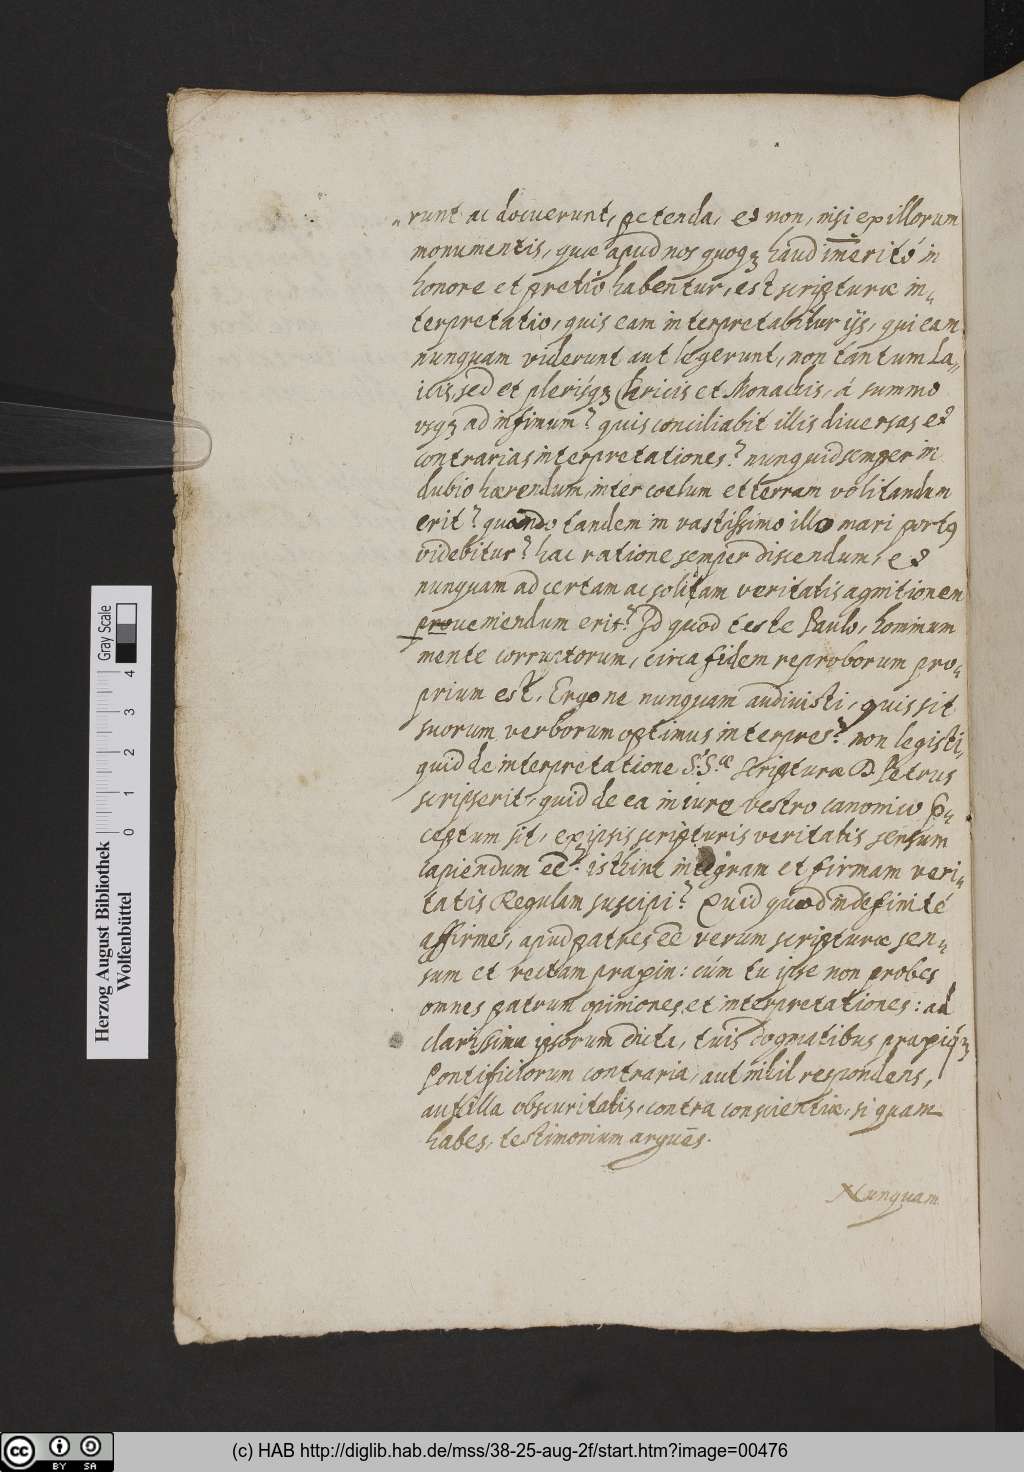 „runt ac docuerunt, petenda, et non, nisi ex illorum
monumentis, quæ apud nos quoqꝫ haud im̄eritó in
honore et pretio habentur, est scripturæ in„
terpretatio, quis eam interpretabitur ijs, qui eam
nunquam viderunt aut legerunt, non tantum La„
icis, sed et plerisqꝫ Clericis et Monachis, á summo
vsqꝫ ad infimum? quis conciliabit illis diuersas et
contrarias interpretationes? nunquid semper in
dubio hærendum, inter coelum et terram volitandum
erit? quando tandem in vastissimo illo mari portꝰ
videbitur? hac ratione semper discendum, et
nunquam ad certam ac solidam veritatis agnitionem
proueniendum erit? Id quod teste Paulo, hominum
mente corruptorum, circa fidem reproborum pro„
prium est. Ergone nunquam audiuisti, quis sit
suorum verborum optimus interpres? non legisti,
quid de interpretatione S.S.æ Scripturæ D. Petrus
scripserit, quid de ea in iure vestro canonico p„
ceptum sit, ex ipsis scripturis veritatis sensum
capiendum eē? isthinc integram et firmam veri„
tatis Regulam suscipi? Quid quod indefinité
affirmes, apud patres eē verum scripturæ sen„
sum et rectam praxin: cúm tu ipse non probes
omnes patrum opiniones et interpretationes: ad
clarissima ipsorum dicta, tuis dogmatibus praxiqꝫ
Pontificiorum contraria, aut nihil respondens,
aut illa obscuritatis, contra conscientiæ, si quam
habes, testimonium arguēs.
Nunquam
Herzog August Bibliothek
Wolfenbüttel
Gray Scale
0 1 2 3 4
cc BY SA
(c) HAB http://diglib.hab.de/mss/38-25-aug-2f/start.htm?image=00476